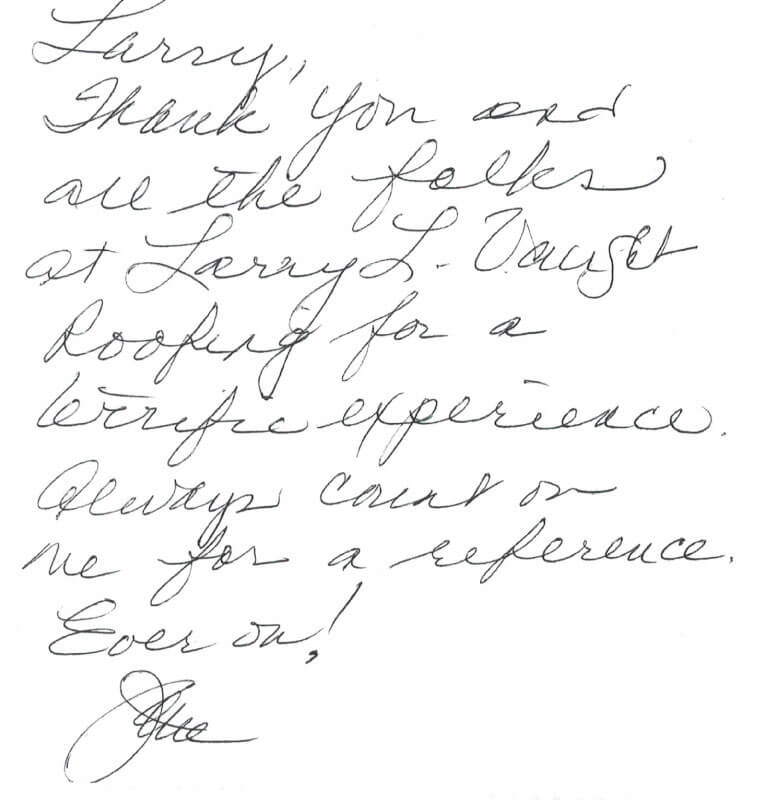 Larry,
Thank you and
all the folks
at Larry L. Vaught
Roofing for a
terrific experience.
Always count on
me for a reference.
Ever on!